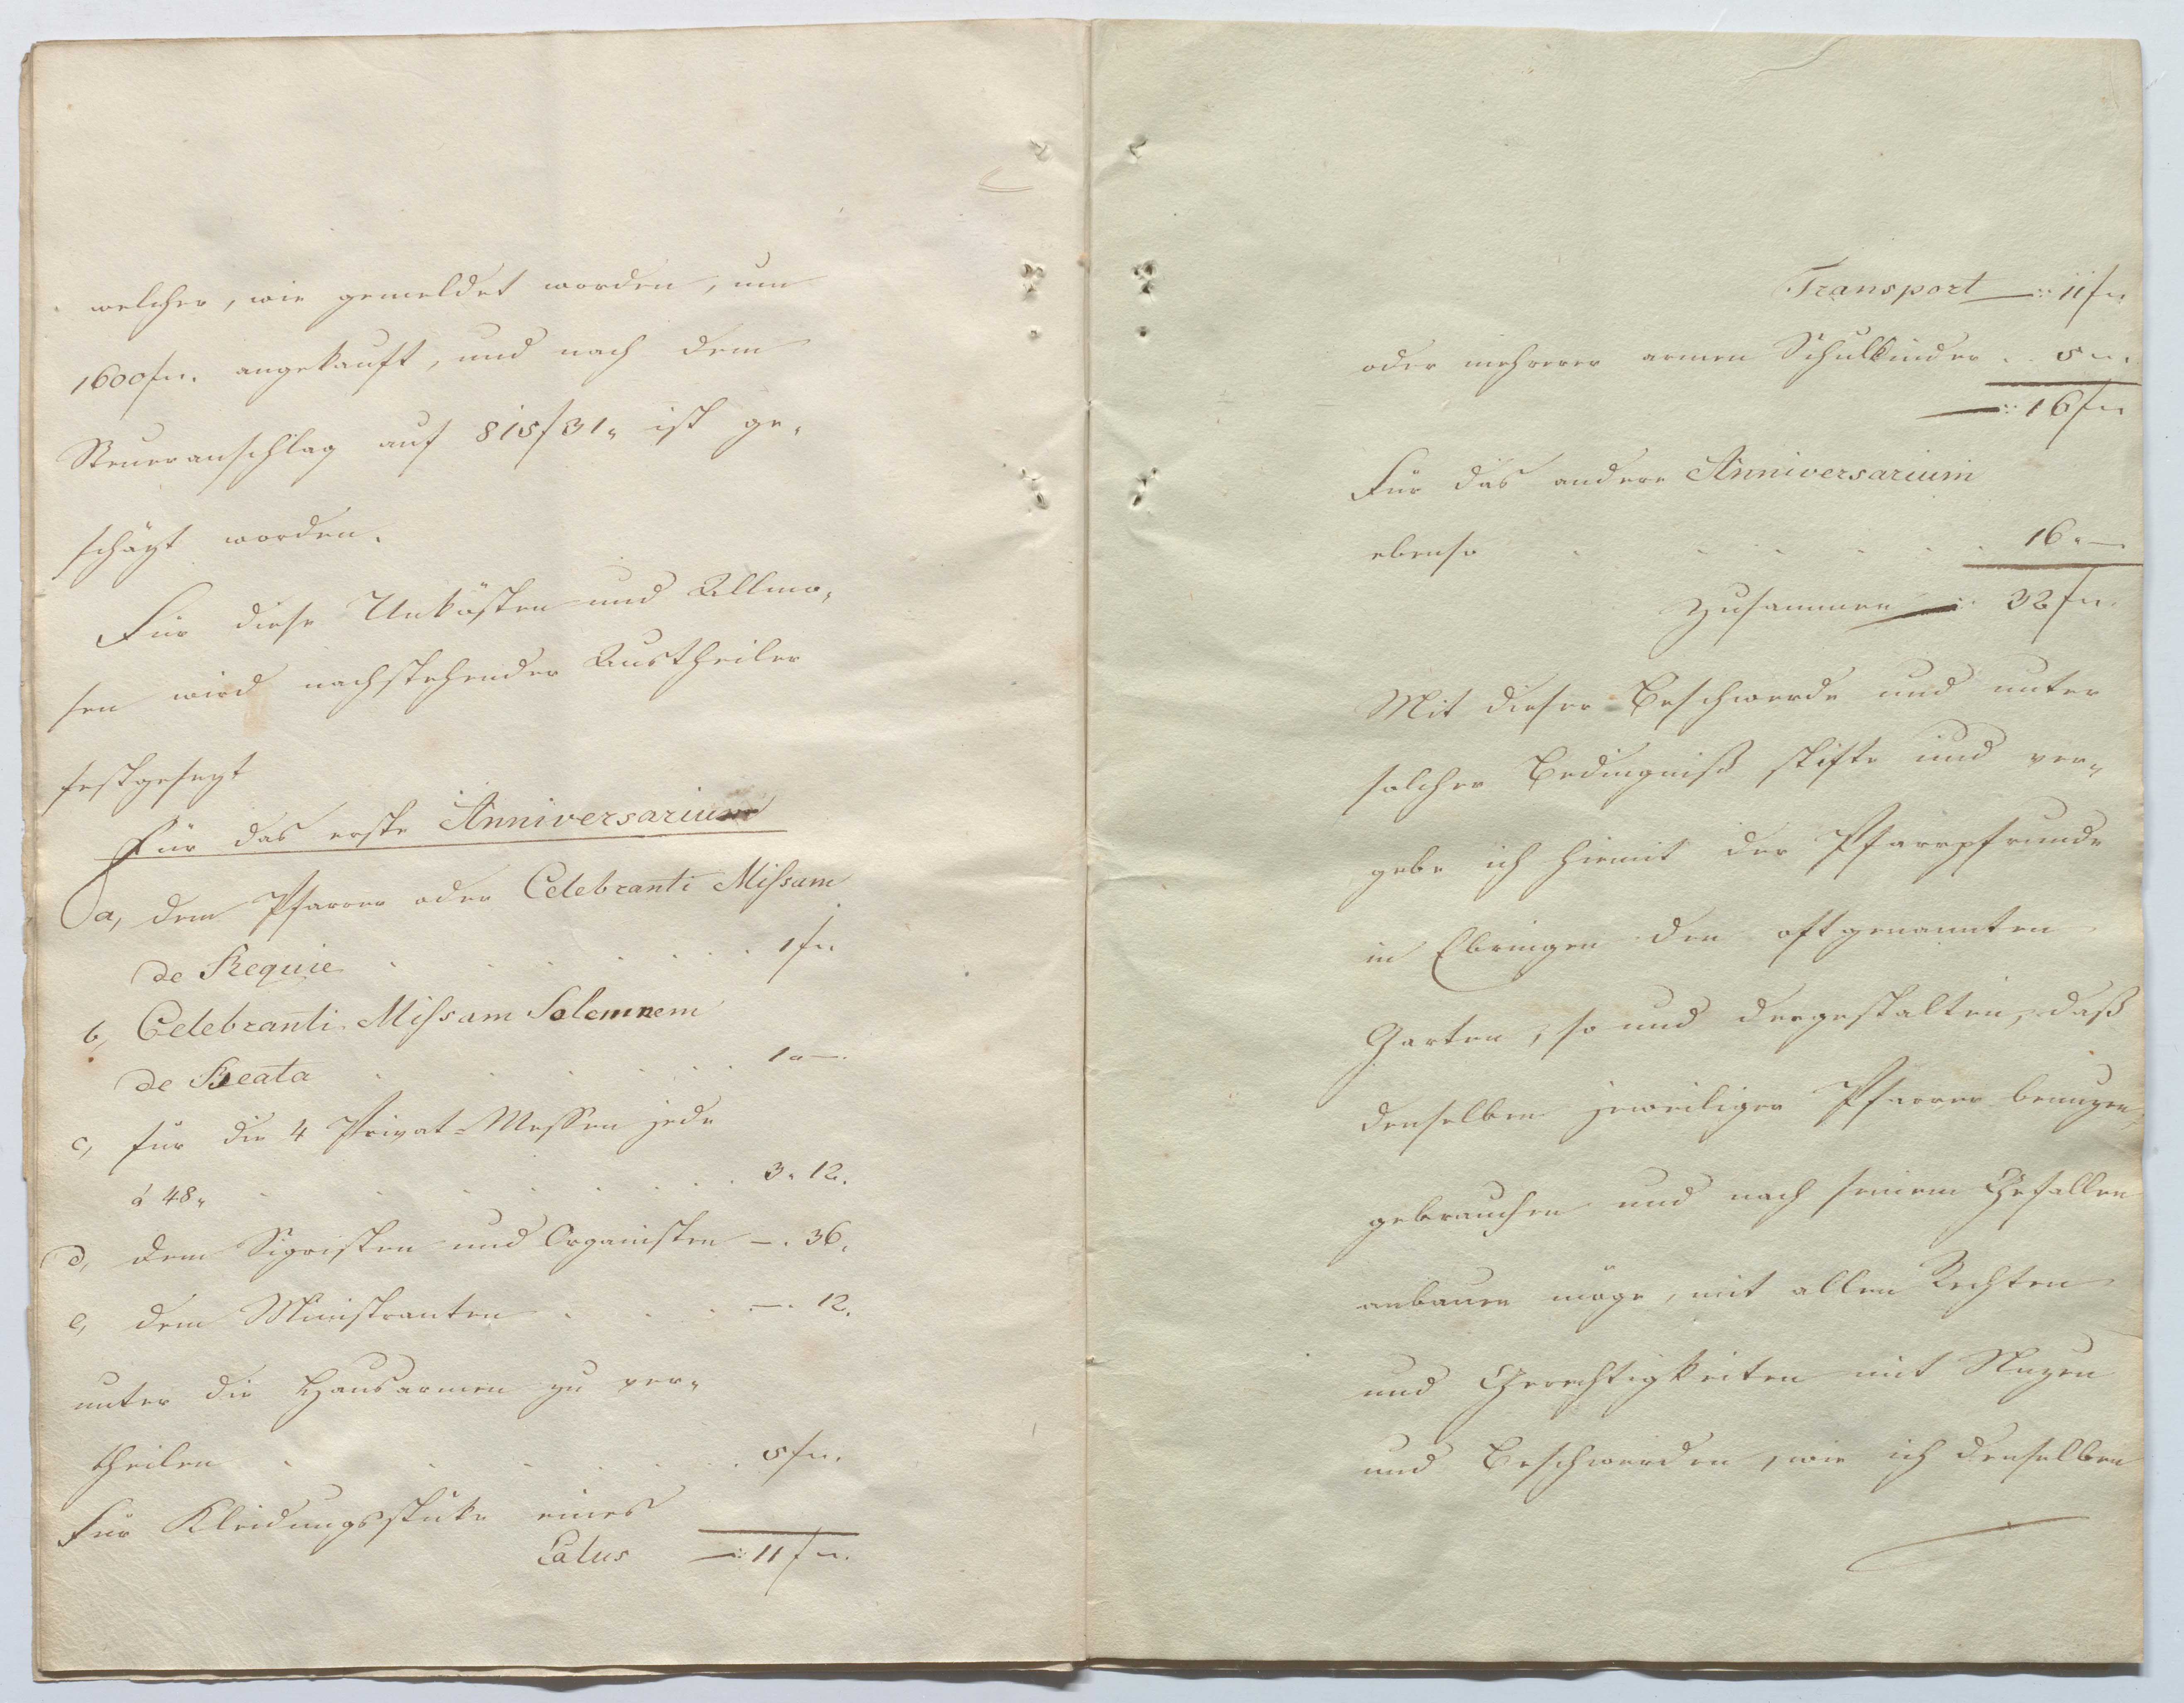 welcher, wie gemeldet worden, um
1600 fr. angekauft, und nach dem
Steueranschlag auf 815 f 31„ ist ge„
schäzt worden.
Für diese Unkösten und Allmo„
sen wird nachstehender Austheiler
festgesezt
Für das erste Anniversarium
a, dem Pfarrer oder Celebranti Missam
de Requie . . . . . . 1 fr.
b, Celebranti Missam Solemnem
de Beata . . . . . . 1 „ —.
c, für die 4 Privat-Messen jede
á 48„ . . . . . . . 3. 12.
d, dem Sigristen und Organisten —. 36.
e, dem Ministranten . . . —. 12.
unter die Hausarmen zu ver„
theilen . . . . . . 5 fr.
Für Kleidungsstüke eines
Latus —:: 11 fr.
Transport —:: 11 fr.
oder mehrerer armen Schulkinder . . 5 „.
—:: 16 fr.
Für das andere Anniversarium
ebenso . . . . . . 16 „ —.
Zusammen —:: 32 fr.
Mit dieser Beschwerde und unter
solcher Bedingniß stifte und ver„
gebe ich hiemit der Pfarrpfrunde
in Ebringen den oftgenannten
Garten, so und dergestalten, daß
denselben jeweiliger Pfarrer benuzen,
gebrauchen und nach seinem Gefallen
anbauen möge, mit allen Rechten
und Gerechtigkeiten mit Nuzen
und Beschwerden, wie ich denselben